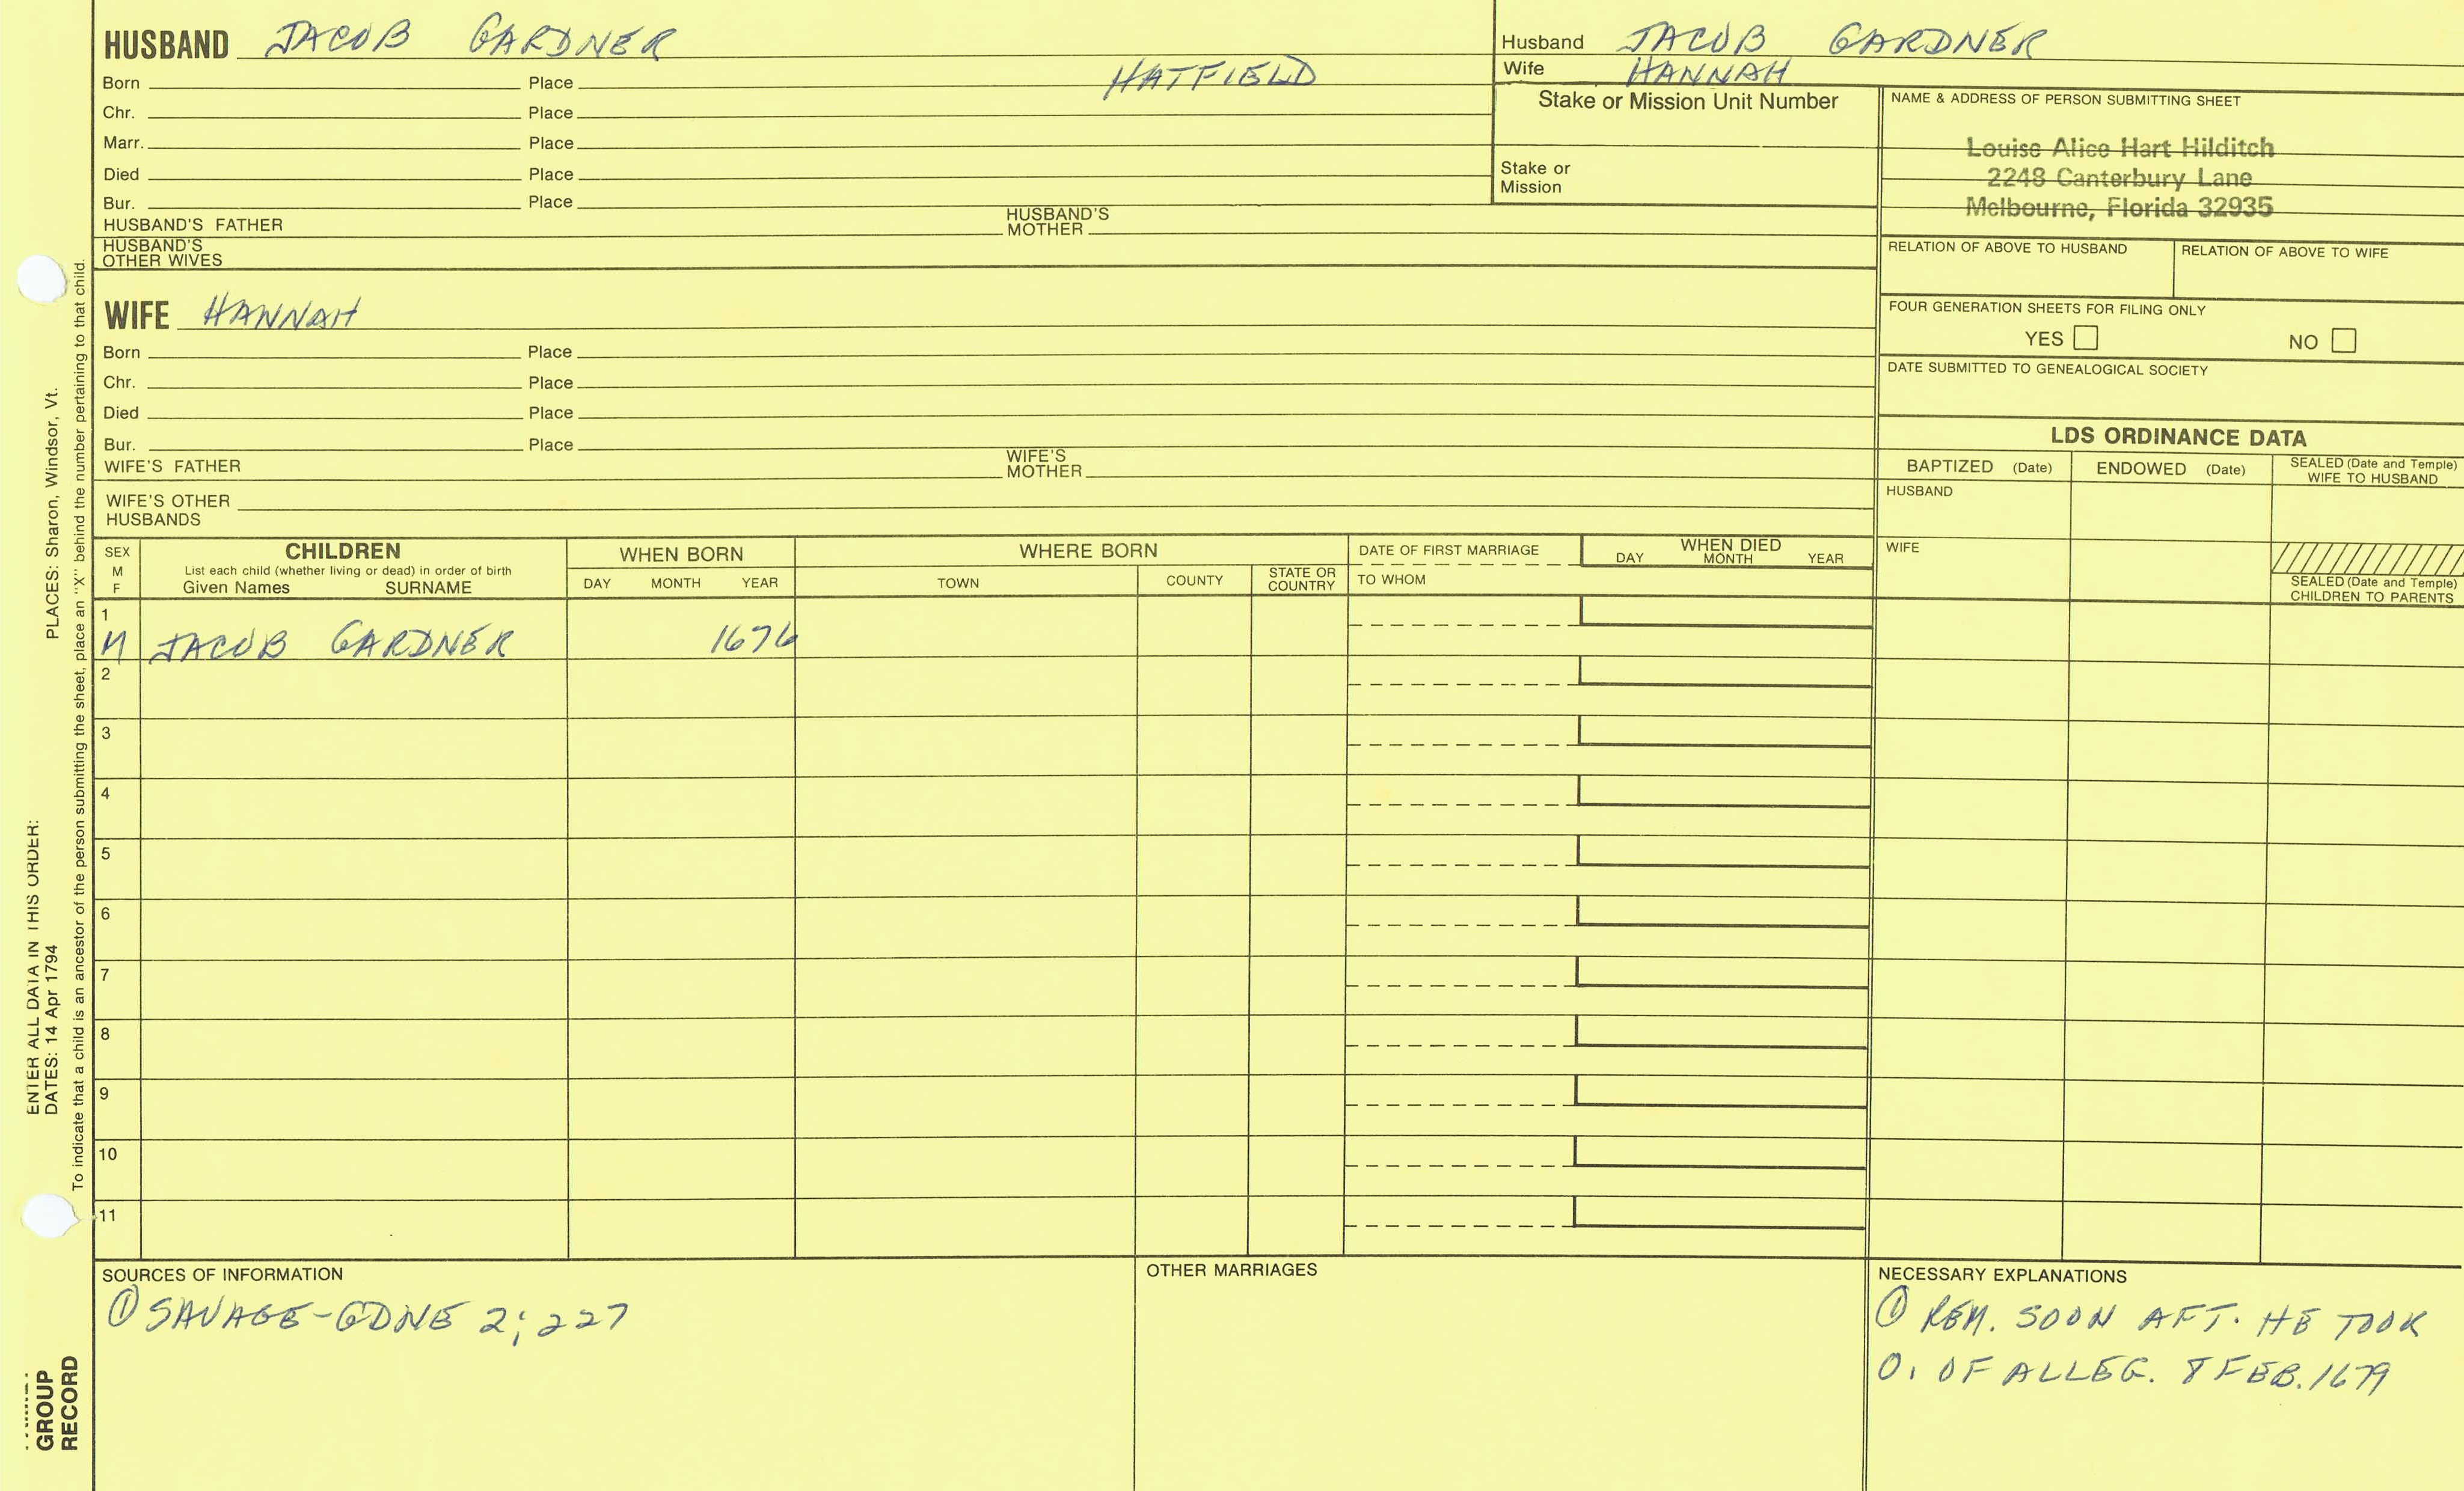 HUSBAND JACOB GARDNER
Born Place HATFIELD
Chr. Place
Marr. Place
Died Place
Bur. Place
HUSBAND'S FATHER HUSBAND'S MOTHER
HUSBAND'S OTHER WIVES
Husband JACOB GARDNER
Wife HANNAH
Stake or Mission Unit Number
Stake or Mission
NAME & ADDRESS OF PERSON SUBMITTING SHEET
Louise Alice Hart Hilditch
2248 Canterbury Lane
Melbourne, Florida 32935
RELATION OF ABOVE TO HUSBAND RELATION OF ABOVE TO WIFE
FOUR GENERATION SHEETS FOR FILING ONLY
YES NO
DATE SUBMITTED TO GENEALOGICAL SOCIETY
WIFE HANNAH
Born Place
Chr. Place
Died Place
Bur. Place
WIFE'S FATHER WIFE'S MOTHER
WIFE'S OTHER HUSBANDS
LDS ORDINANCE DATA
BAPTIZED (Date) ENDOWED (Date) SEALED (Date and Temple) WIFE TO HUSBAND
HUSBAND
WIFE
SEALED (Date and Temple) CHILDREN TO PARENTS
SEX M F
CHILDREN
List each child (whether living or dead) in order of birth
Given Names SURNAME
WHEN BORN
DAY MONTH YEAR
WHERE BORN
TOWN COUNTY STATE OR COUNTRY
DATE OF FIRST MARRIAGE
TO WHOM
WHEN DIED
DAY MONTH YEAR
1
M JACOB GARDNER 1676
2
3
4
5
6
7
8
9
10
11
SOURCES OF INFORMATION
① SAVAGE-GDNE 2;227
OTHER MARRIAGES
NECESSARY EXPLANATIONS
① REM. SOON AFT. HE TOOK
O. OF ALLEG. 8 FEB. 1679
PLACES: Sharon, Windsor, Vt.
ENTER ALL DATA IN THIS ORDER:
DATES: 14 Apr 1794
To indicate that a child is an ancestor of the person submitting the sheet, place an "X" behind the number pertaining to that child.
GROUP
RECORD